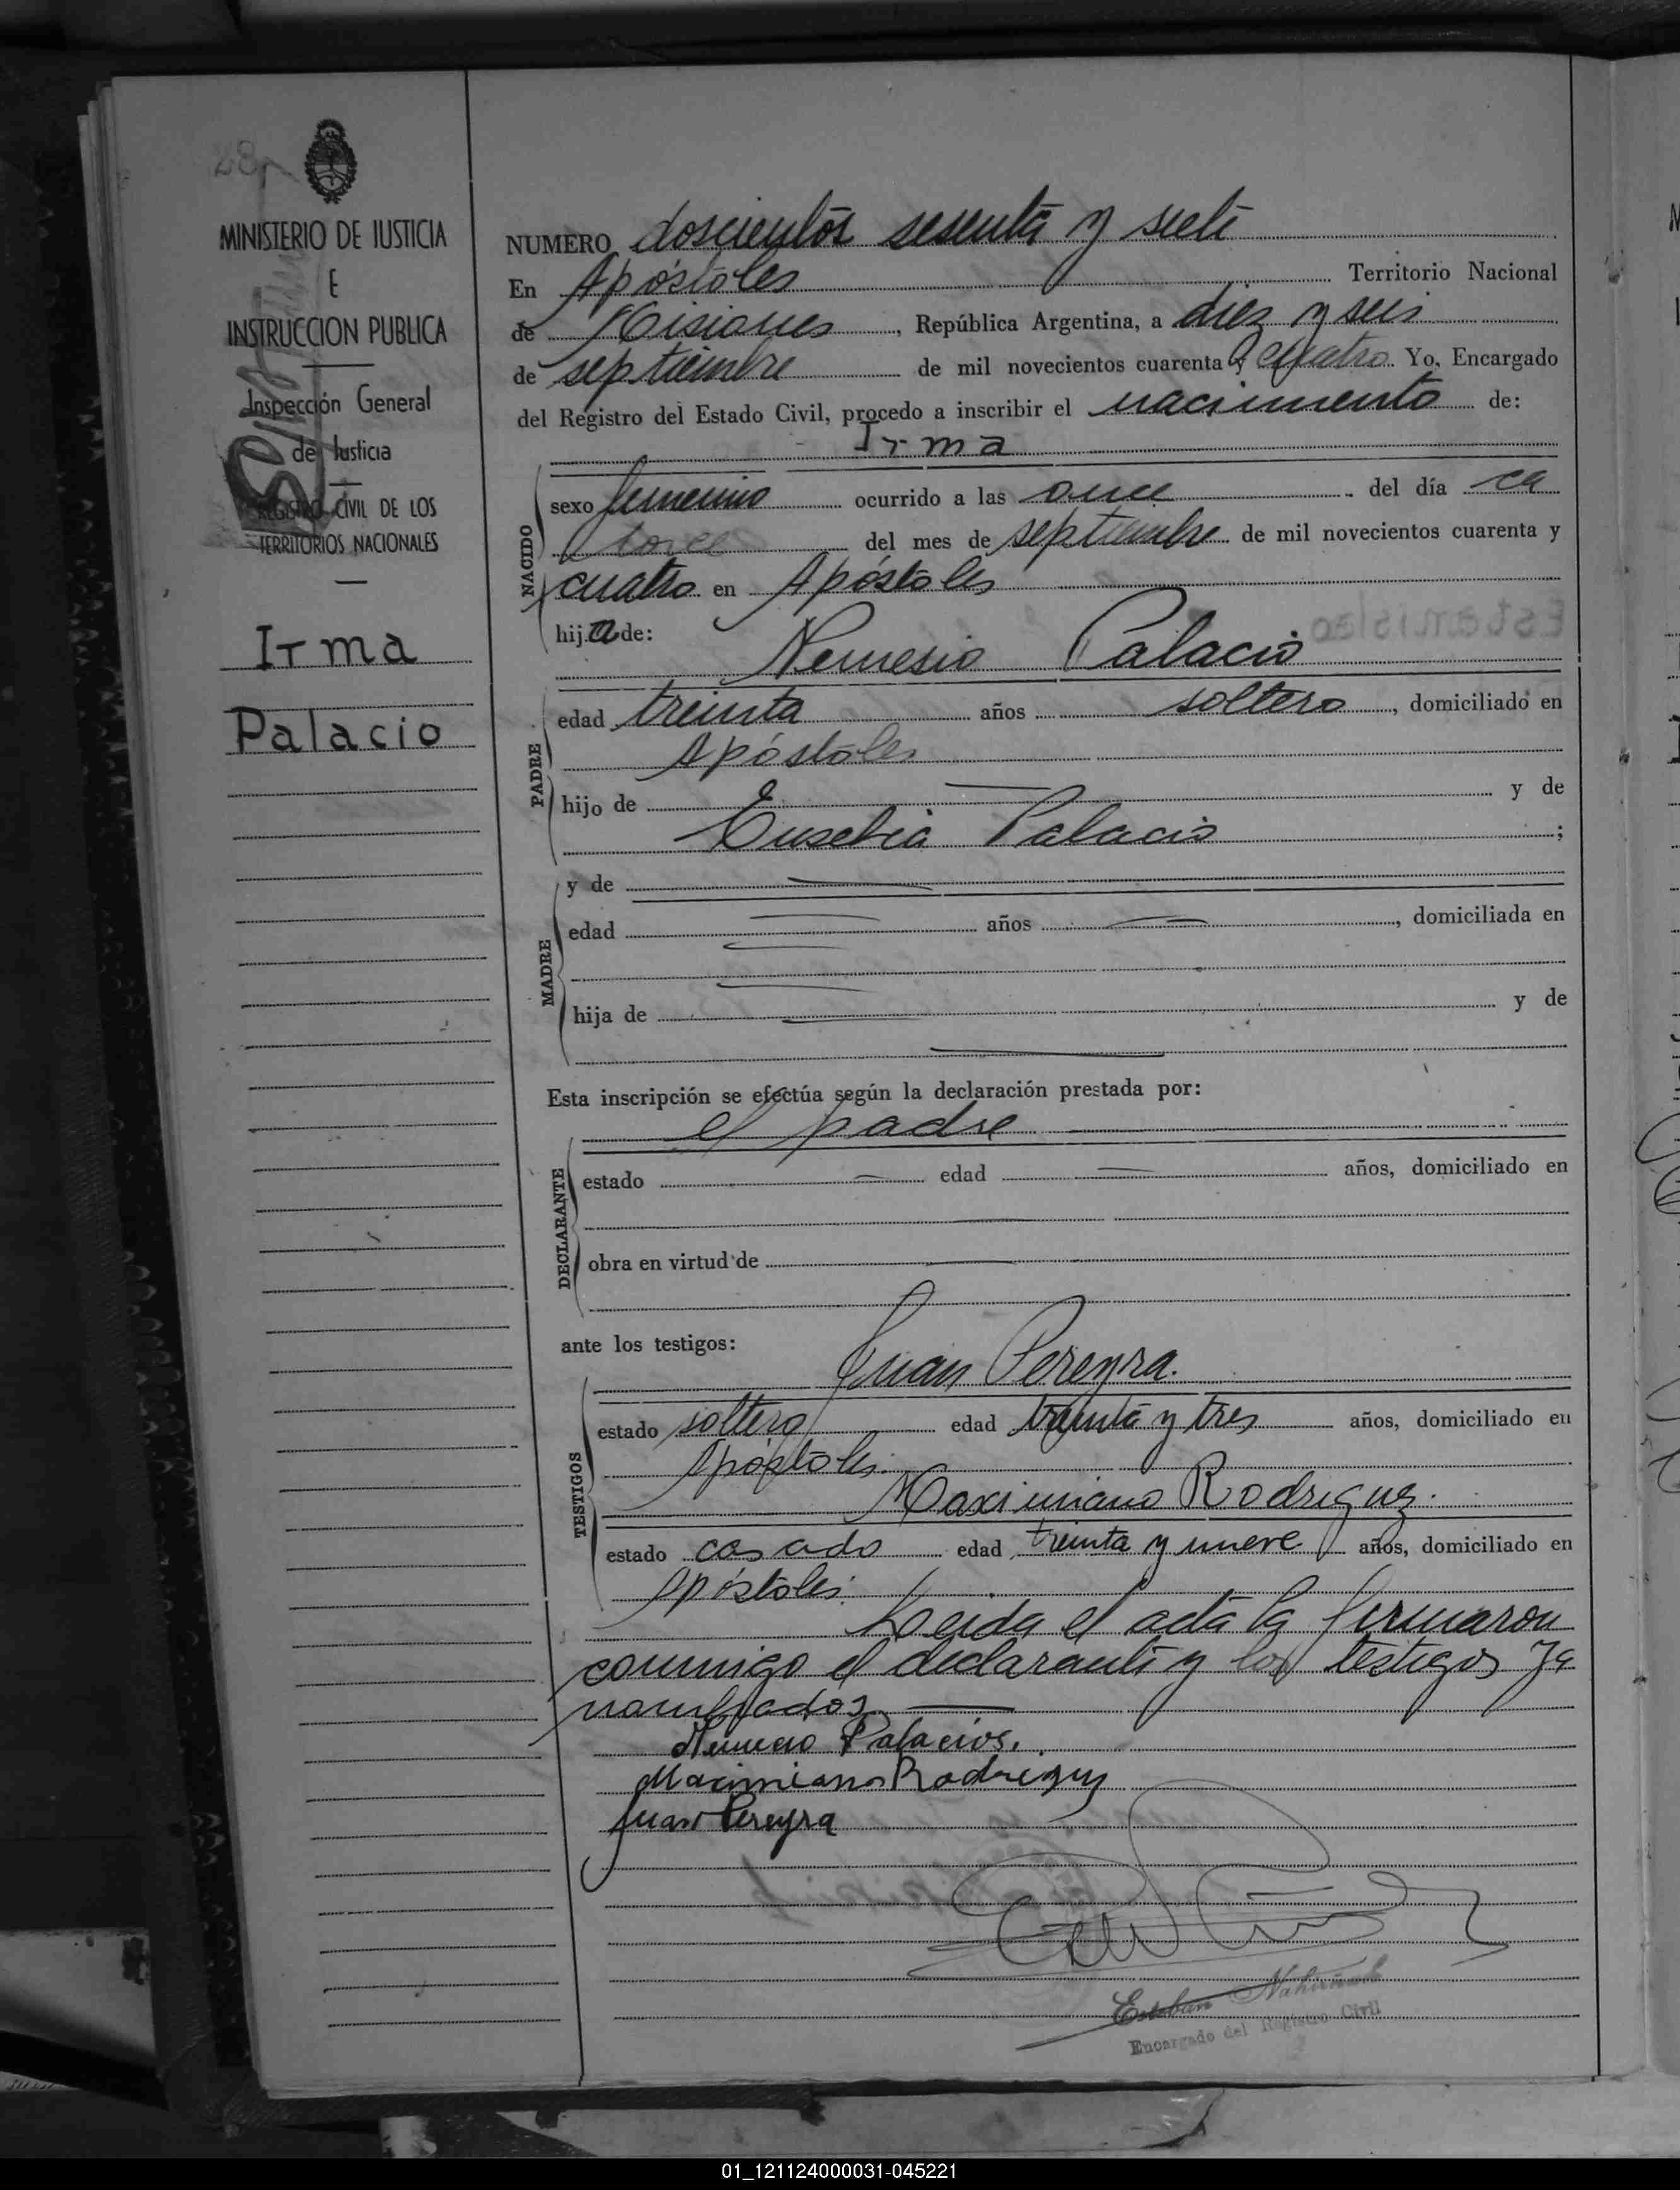 MINISTERIO DE JUSTICIA
E
INSTRUCCION PUBLICA
Inspección General
de Justicia
REGISTRO CIVIL DE LOS
TERRITORIOS NACIONALES
Irma
Palacio
NUMERO doscientos sesenta y siete
En Apóstoles Territorio Nacional
de Misiones, República Argentina, a diez y seis
de septiembre de mil novecientos cuarenta y cuatro. Yo, Encargado
del Registro del Estado Civil, procedo a inscribir el nacimiento de:
Irma
NACIDO
sexo femenino ocurrido a las once del día ca
torce del mes de septiembre de mil novecientos cuarenta y
cuatro en Apóstoles
hija de:
Nemesio Palacio
PADRE
edad treinta años soltero, domiciliado en
Apóstoles
hijo de — y de
Eusebia Palacio;
MADRE
y de —
edad — años —, domiciliada en
hija de — y de
Esta inscripción se efectúa según la declaración prestada por:
el padre
DECLARANTE
estado — edad — años, domiciliado en
obra en virtud de
ante los testigos:
Juan Pereyra.
TESTIGOS
estado soltero edad treinta y tres años, domiciliado en
Apóstoles.
Maximiano Rodriguez.
estado casado edad treinta y nueve años, domiciliado en
Apóstoles.
Leida el acta la firmaron
conmigo el declarante y los testigos ya
nombrados —
Nemecio Palacios.
Macimiano Rodriguez
Juan Pereyra
Esteban
Encargado del Registro Civil
01_121124000031-045221